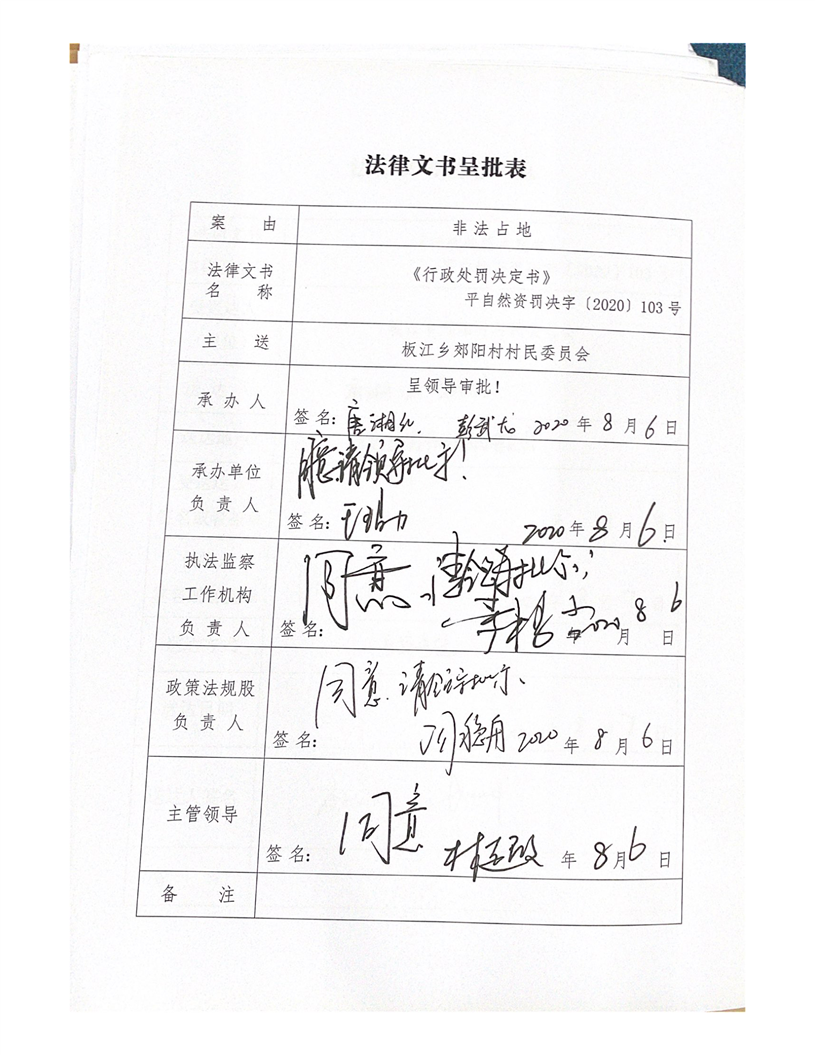 法律文书呈批表
案 由
非法占地
法律文书
名 称
《行政处罚决定书》
平自然资罚决字〔2020〕103号
主 送
板江乡郊阳村村民委员会
承办人
呈领导审批！
签名： 2020年8月6日
承办单位
负责人
请领导批示！
签名： 2020年8月6日
执法监察
工作机构
负责人
同意，请领导批示
签名： 2020年8月6日
政策法规股
负责人
同意，请领导批示、
签名： 2020年8月6日
主管领导
同意
签名： 年8月6日
备 注